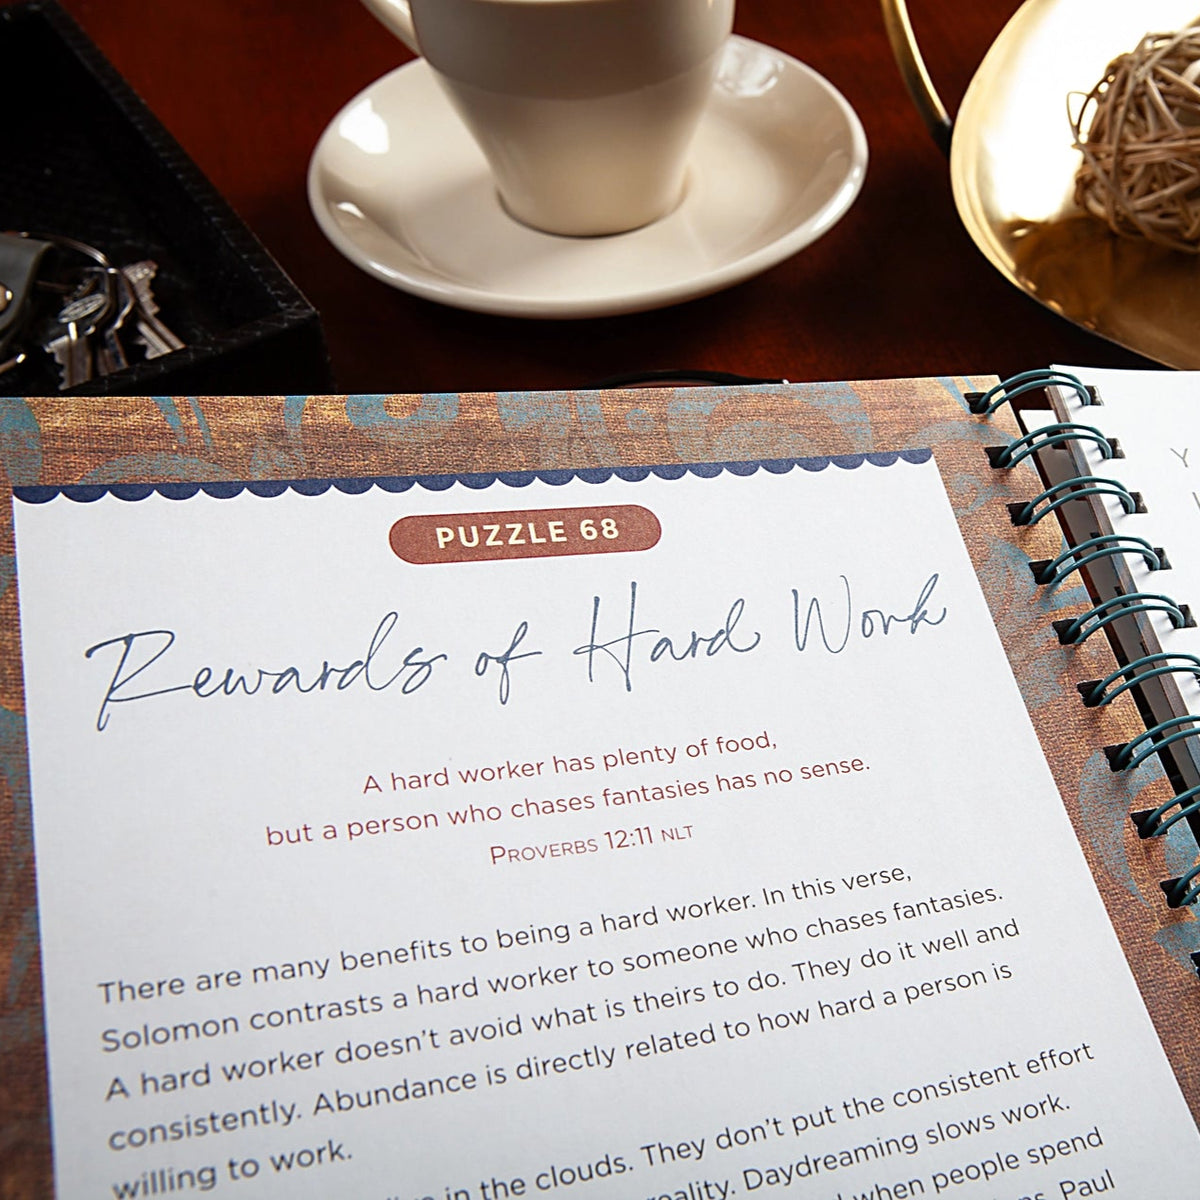 PUZZLE 68
Rewards of Hard Work
A hard worker has plenty of food,
but a person who chases fantasies has no sense.
PROVERBS 12:11 NLT
There are many benefits to being a hard worker. In this verse,
Solomon contrasts a hard worker to someone who chases fantasies.
A hard worker doesn't avoid what is theirs to do. They do it well and
consistently. Abundance is directly related to how hard a person is
willing to work.
in the clouds. They don't put the consistent effort
Daydreaming slows work.
when people spend
Paul
Y